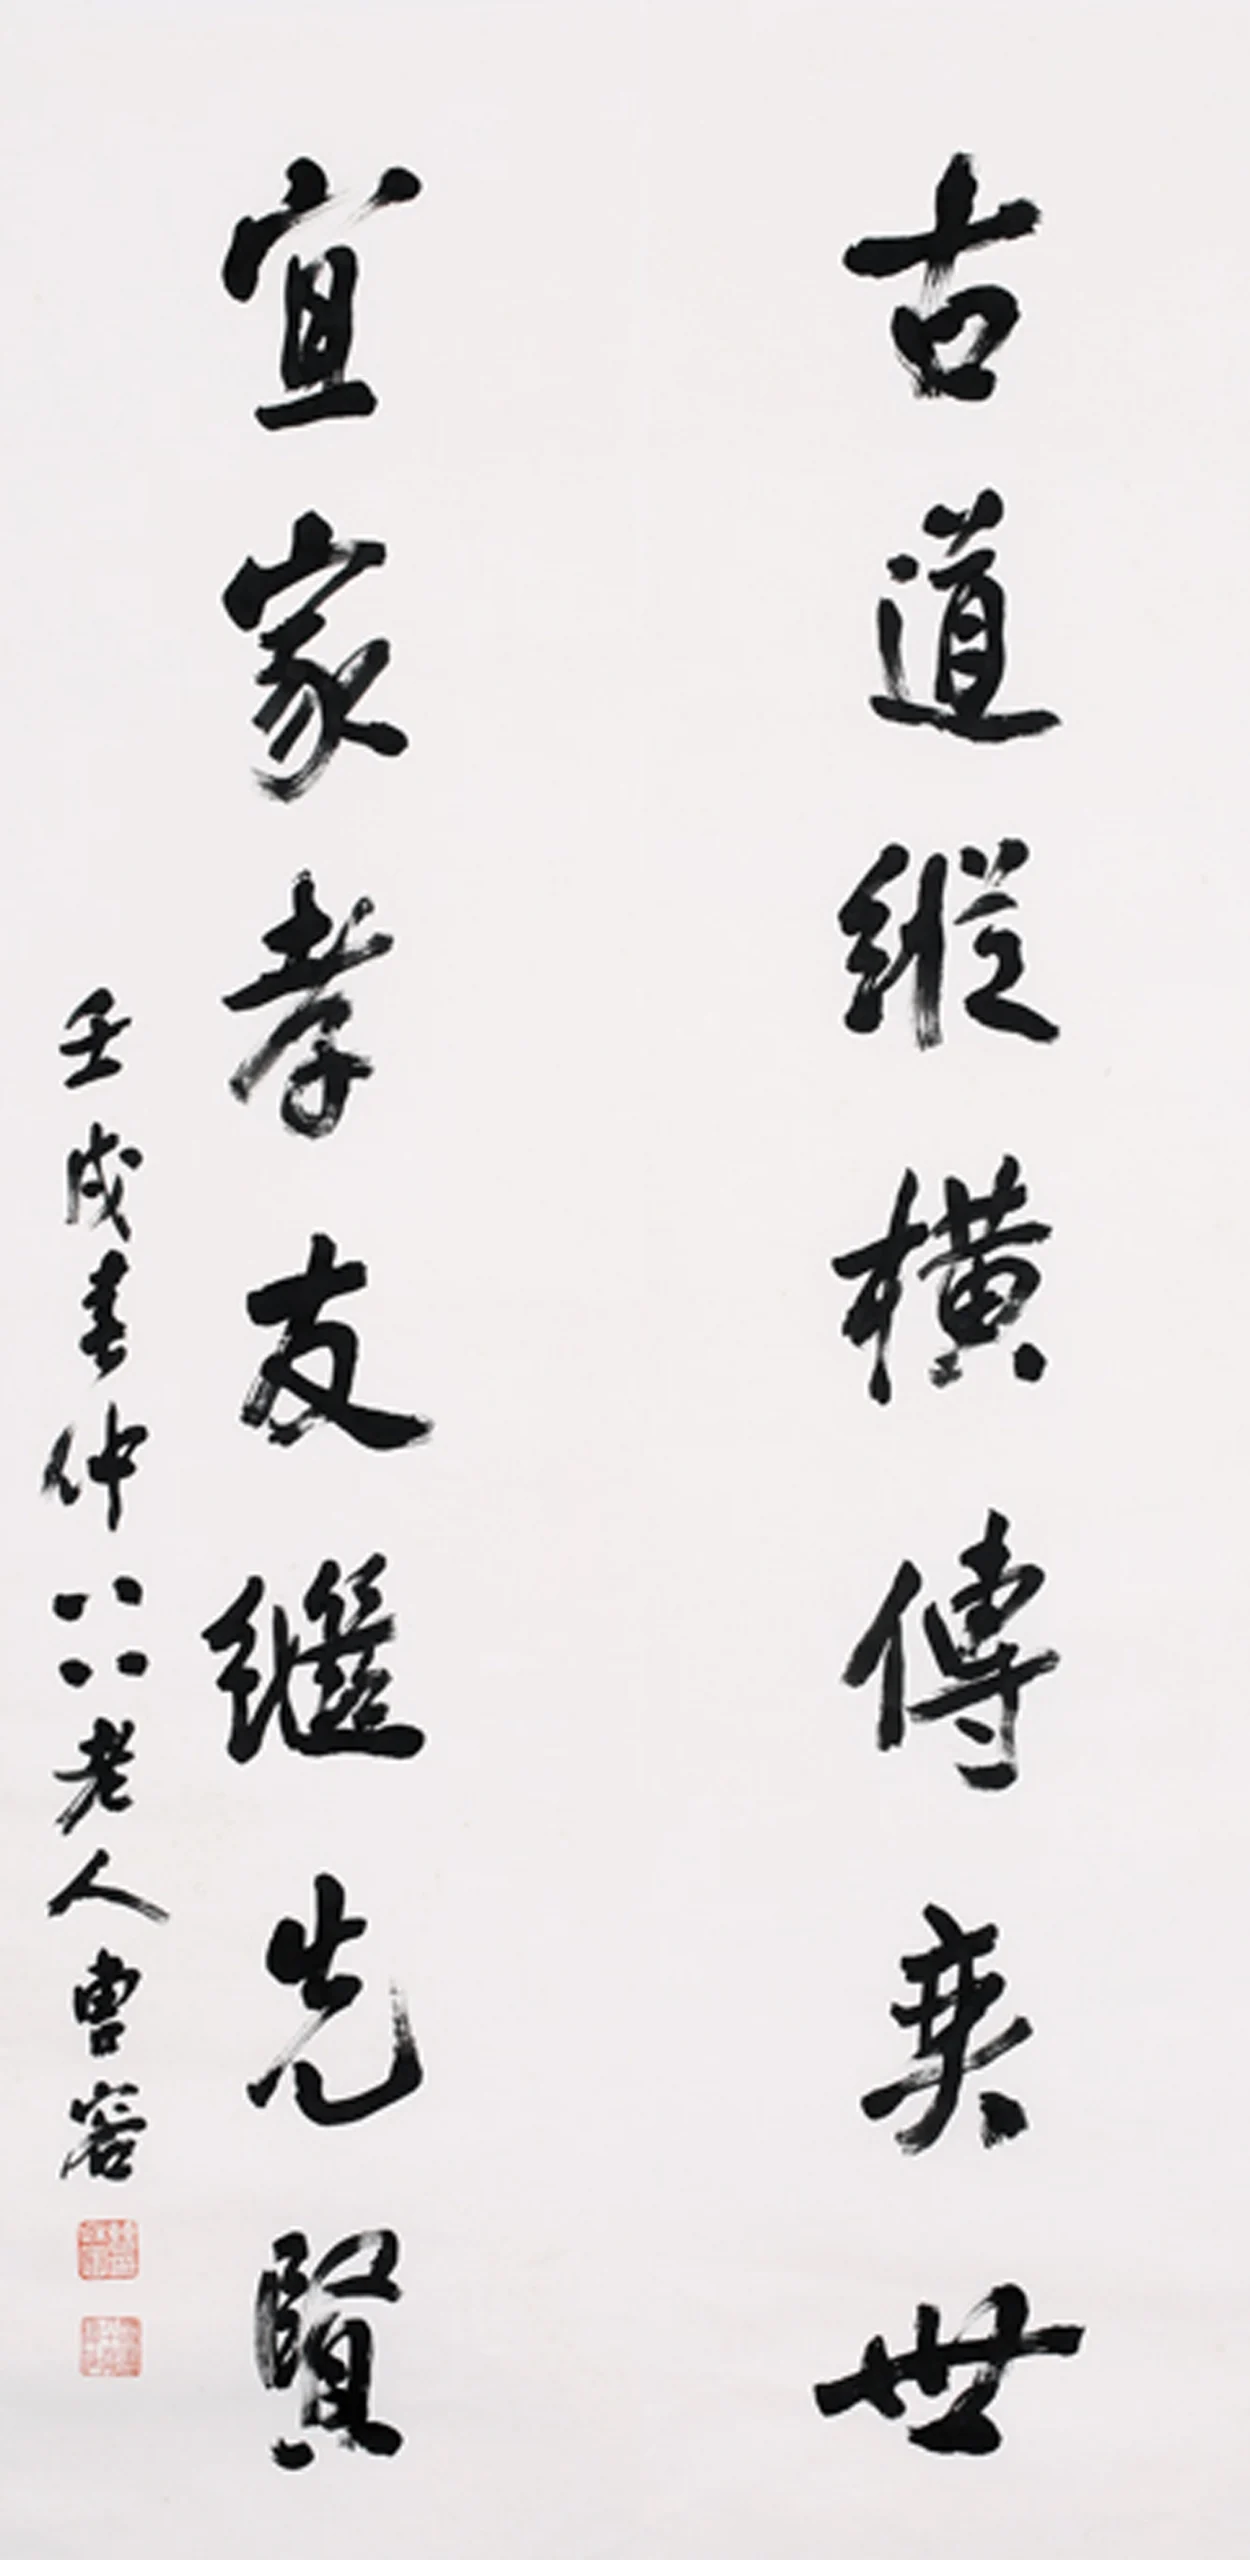 古道縱橫傳奕世
宜家孝友繼先賢
壬戌春仲八八老人曹容